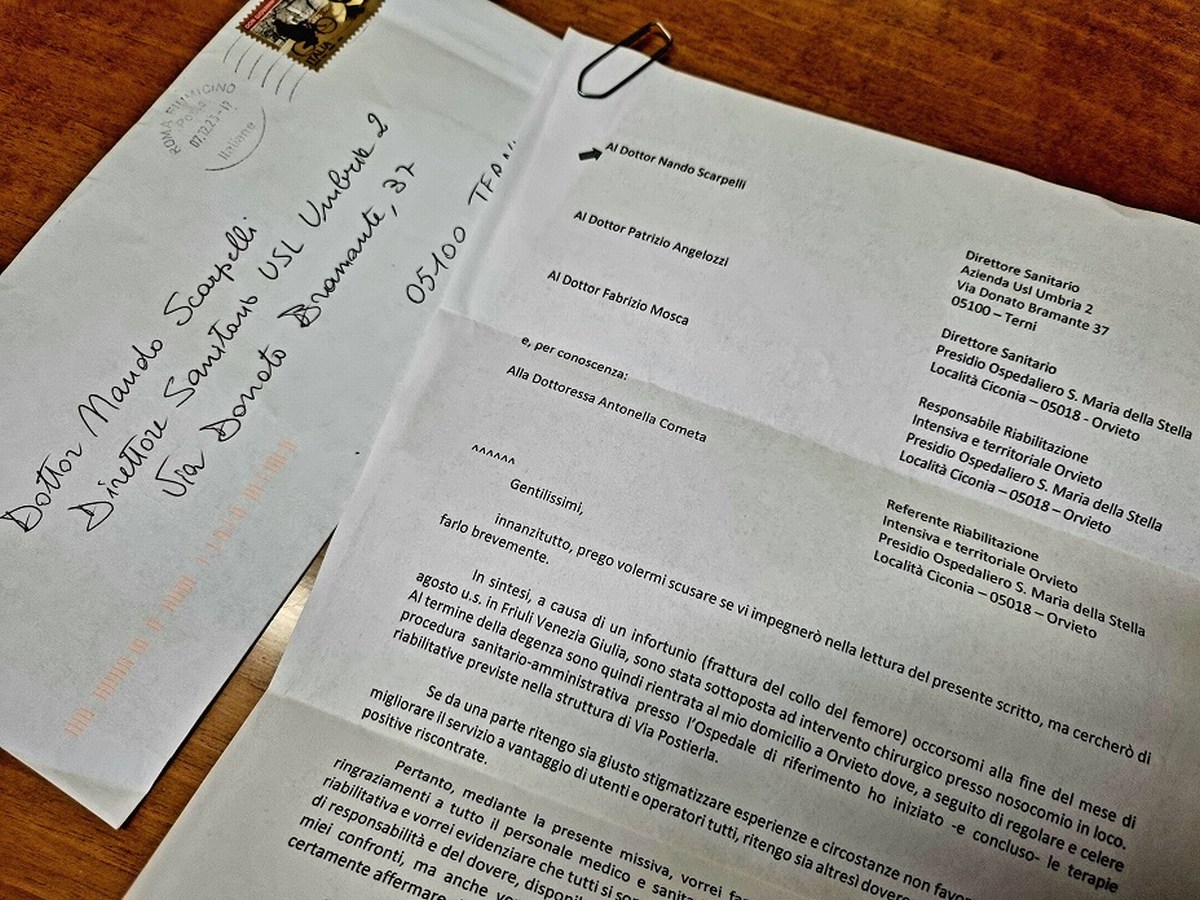 ITALIA
ROMA FIUMICINO
Poste
07.12.23-17
Italiane
Dottor Nando Scarpelli
Direttore Sanitario USL Umbria 2
Via Donato Bramante, 37
05100 TERNI
Al Dottor Nando Scarpelli
Direttore Sanitario
Azienda Usl Umbria 2
Via Donato Bramante 37
05100 – Terni
Al Dottor Patrizio Angelozzi
Direttore Sanitario
Presidio Ospedaliero S. Maria della Stella
Località Ciconia – 05018 - Orvieto
Al Dottor Fabrizio Mosca
Responsabile Riabilitazione
Intensiva e territoriale Orvieto
Presidio Ospedaliero S. Maria della Stella
Località Ciconia – 05018 – Orvieto
e, per conoscenza:
Alla Dottoressa Antonella Cometa
Referente Riabilitazione
Intensiva e territoriale Orvieto
Presidio Ospedaliero S. Maria della Stella
Località Ciconia – 05018 – Orvieto
^^^^^^
Gentilissimi,
innanzitutto, prego volermi scusare se vi impegnerò nella lettura del presente scritto, ma cercherò di
farlo brevemente.
In sintesi, a causa di un infortunio (frattura del collo del femore) occorsomi alla fine del mese di
agosto u.s. in Friuli Venezia Giulia, sono stata sottoposta ad intervento chirurgico presso nosocomio in loco.
Al termine della degenza sono quindi rientrata al mio domicilio a Orvieto dove, a seguito di regolare e celere
procedura sanitario-amministrativa presso l'Ospedale di riferimento ho iniziato -e concluso- le terapie
riabilitative previste nella struttura di Via Postierla.
Se da una parte ritengo sia giusto stigmatizzare esperienze e circostanze non
migliorare il servizio a vantaggio di utenti e operatori tutti, ritengo sia altresì
positive riscontrate.
Pertanto, mediante la presente missiva, vorrei
ringraziamenti a tutto il personale medico e
riabilitativa e vorrei evidenziare che tutti si
di responsabilità e del dovere,
miei confronti, ma anche
certamente affermare